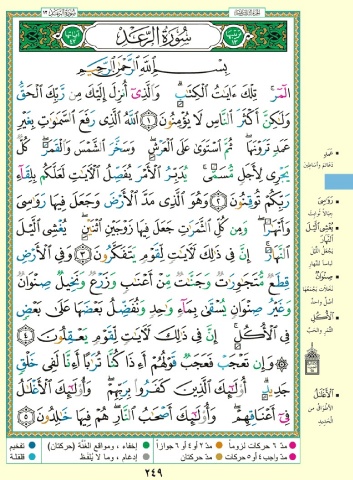 سُورَةُ الرَّعْدِ
بِسْمِ اللَّهِ الرَّحْمَٰنِ الرَّحِيمِ
الٓمٓر ۚ تِلْكَ ءَايَٰتُ الْكِتَٰبِ ۗ وَالَّذِىٓ أُنزِلَ إِلَيْكَ مِن رَّبِّكَ الْحَقُّ
وَلَٰكِنَّ أَكْثَرَ النَّاسِ لَا يُؤْمِنُونَ ١ اللَّهُ الَّذِى رَفَعَ السَّمَٰوَٰتِ بِغَيْرِ
عَمَدٍ تَرَوْنَهَا ۖ ثُمَّ اسْتَوَىٰ عَلَى الْعَرْشِ ۖ وَسَخَّرَ الشَّمْسَ وَالْقَمَرَ ۖ كُلٌّ
يَجْرِى لِأَجَلٍ مُّسَمًّى ۚ يُدَبِّرُ الْأَمْرَ يُفَصِّلُ الْءَايَٰتِ لَعَلَّكُم بِلِقَآءِ
رَبِّكُمْ تُوقِنُونَ ٢ وَهُوَ الَّذِى مَدَّ الْأَرْضَ وَجَعَلَ فِيهَا رَوَٰسِىَ
وَأَنْهَٰرًا ۖ وَمِن كُلِّ الثَّمَرَٰتِ جَعَلَ فِيهَا زَوْجَيْنِ اثْنَيْنِ ۖ يُغْشِى الَّيْلَ
النَّهَارَ ۚ إِنَّ فِى ذَٰلِكَ لَءَايَٰتٍ لِّقَوْمٍ يَتَفَكَّرُونَ ٣ وَفِى الْأَرْضِ
قِطَعٌ مُّتَجَٰوِرَٰتٌ وَجَنَّٰتٌ مِّنْ أَعْنَٰبٍ وَزَرْعٌ وَنَخِيلٌ صِنْوَانٌ
وَغَيْرُ صِنْوَانٍ يُسْقَىٰ بِمَآءٍ وَٰحِدٍ وَنُفَضِّلُ بَعْضَهَا عَلَىٰ بَعْضٍ
فِى الْأُكُلِ ۚ إِنَّ فِى ذَٰلِكَ لَءَايَٰتٍ لِّقَوْمٍ يَعْقِلُونَ ٤
۞ وَإِن تَعْجَبْ فَعَجَبٌ قَوْلُهُمْ أَءِذَا كُنَّا تُرَٰبًا أَءِنَّا لَفِى خَلْقٍ
جَدِيدٍ ۗ أُو۟لَٰٓئِكَ الَّذِينَ كَفَرُوا۟ بِرَبِّهِمْ ۖ وَأُو۟لَٰٓئِكَ الْأَغْلَٰلُ
فِىٓ أَعْنَاقِهِمْ ۖ وَأُو۟لَٰٓئِكَ أَصْحَٰبُ النَّارِ ۖ هُمْ فِيهَا خَٰلِدُونَ ٥
عَمَدٍ
رَوَاسِيَ
جبالاً ثوابت
يُغْشِي الَّيْلَ
النَّهَارَ
صِنْوَانٌ
الْأُكُلِ
الْأَغْلَالُ
الأطواق من
الحديد
مدّ ٦ حركات لزوماً
مدّ ٢ أو ٤ أو ٦ جوازاً
إخفاء، ومواقع الغنّة (حركتان)
تفخيم
مدّ واجب ٤ أو ٥ حركات
مدّ حركتان
إدغام، وما لا يُلفظ
قلقلة
٢٤٩